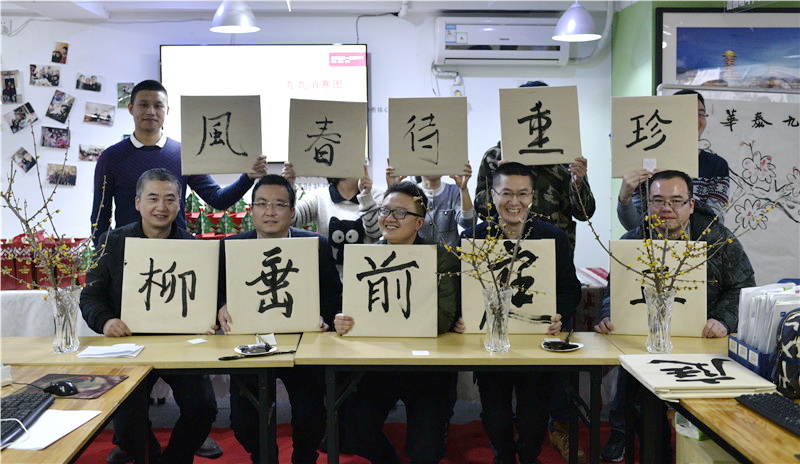 九九消寒图
珍重待春風
庭前垂柳
九泰華